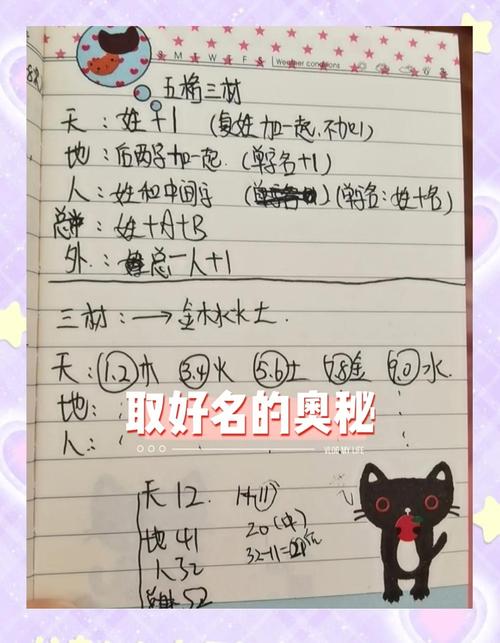 S M T W E F S Weather conditions
五格三材
天：姓+1 (复姓加一起,不加1)
地：后两字加一起.(单字名+1)
人：姓和中间字 (单字名：姓+名)
总：姓+A+B
外：总一人+1
三材：→金木水火土.
天：1.2木 3.4火 5.6土 7.8金 9.0水.
地：
人：
取好名的奥秘
VLOG MY LIFE
天12.
地41
人32
总52
20(中)